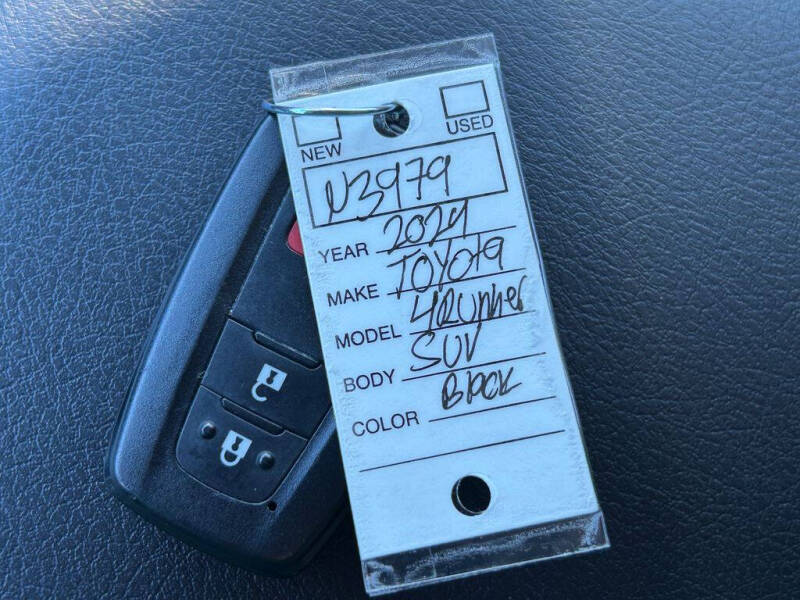 NEW USED
N3979
YEAR 2024
MAKE TOYOTA
MODEL 4Runner
BODY SUV
COLOR Black